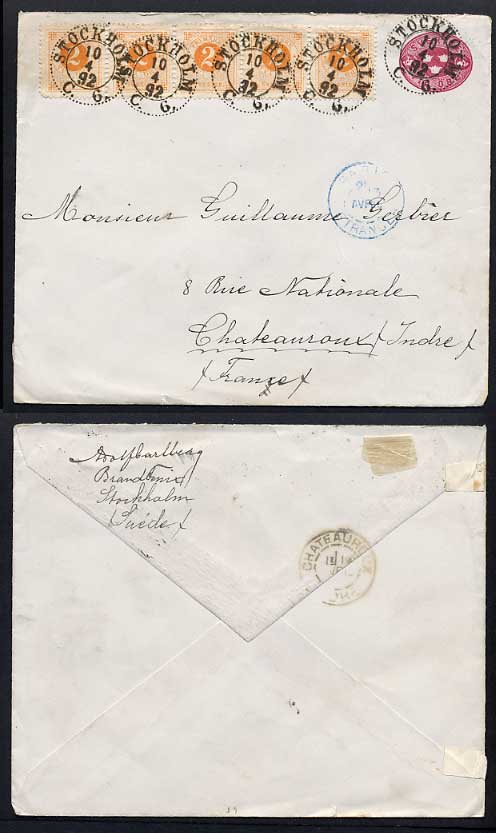 STOCKHOLM 10 4 92 C. G.
STOCKHOLM 10 4 92 C. G.
STOCKHOLM 10 4 92 C. G.
STOCKHOLM 10 4 92 C. G.
STOCKHOLM 10 92 G.
2
2
Monsieur Guillaume Gerbier
8 Rue Nationale
Chateauroux (Indre)
(France)
Stockholm
(Suède)
CHATEAUROUX